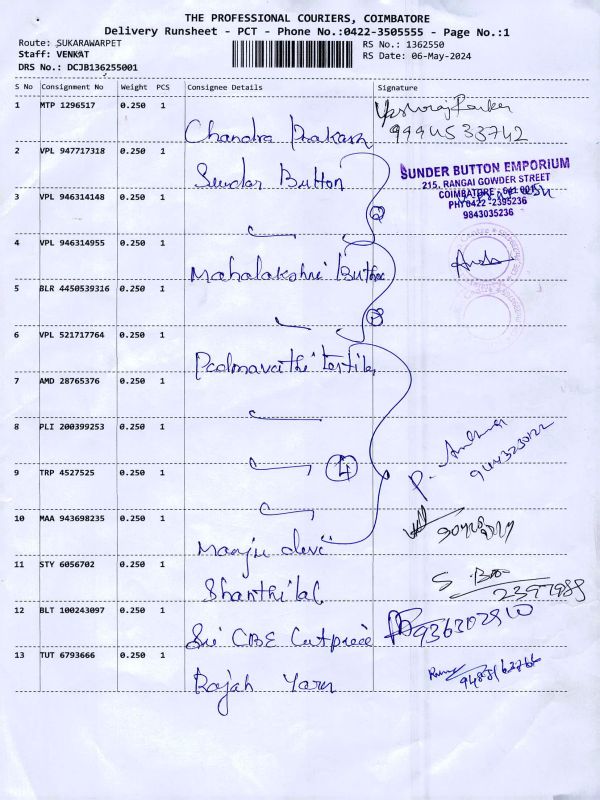 THE PROFESSIONAL COURIERS, COIMBATORE
Delivery Runsheet - PCT - Phone No.:0422-3505555 - Page No.:1
Route: SUKARAWARPET
Staff: VENKAT
DRS No.: DCJB136255001
RS No.: 1362550
RS Date: 06-May-2024
S No Consignment No Weight PCS Consignee Details Signature
1 MTP 1296517 0.250 1 Chandra Prakash 9994533742
2 VPL 947717318 0.250 1 Sundar Button
SUNDER BUTTON EMPORIUM
215, RANGAI GOWDER STREET
COIMBATORE - 641 001
PH: 0422 - 2395236
9843035236
3 VPL 946314148 0.250 1 2
4 VPL 946314955 0.250 1 Mahalakshmi Button
5 BLR 4450539316 0.250 1
6 VPL 521717764 0.250 1 Padmavathi Textile
7 AMD 28765376 0.250 1
8 PLI 200399253 0.250 1
9 TRP 4527525 0.250 1 4
10 MAA 943698235 0.250 1 Manju devi
11 STY 6056702 0.250 1 Shanthilal S. 2397988
12 BLT 100243097 0.250 1 Sri CBE Cutpiece
13 TUT 6793666 0.250 1 Rajah Yarn